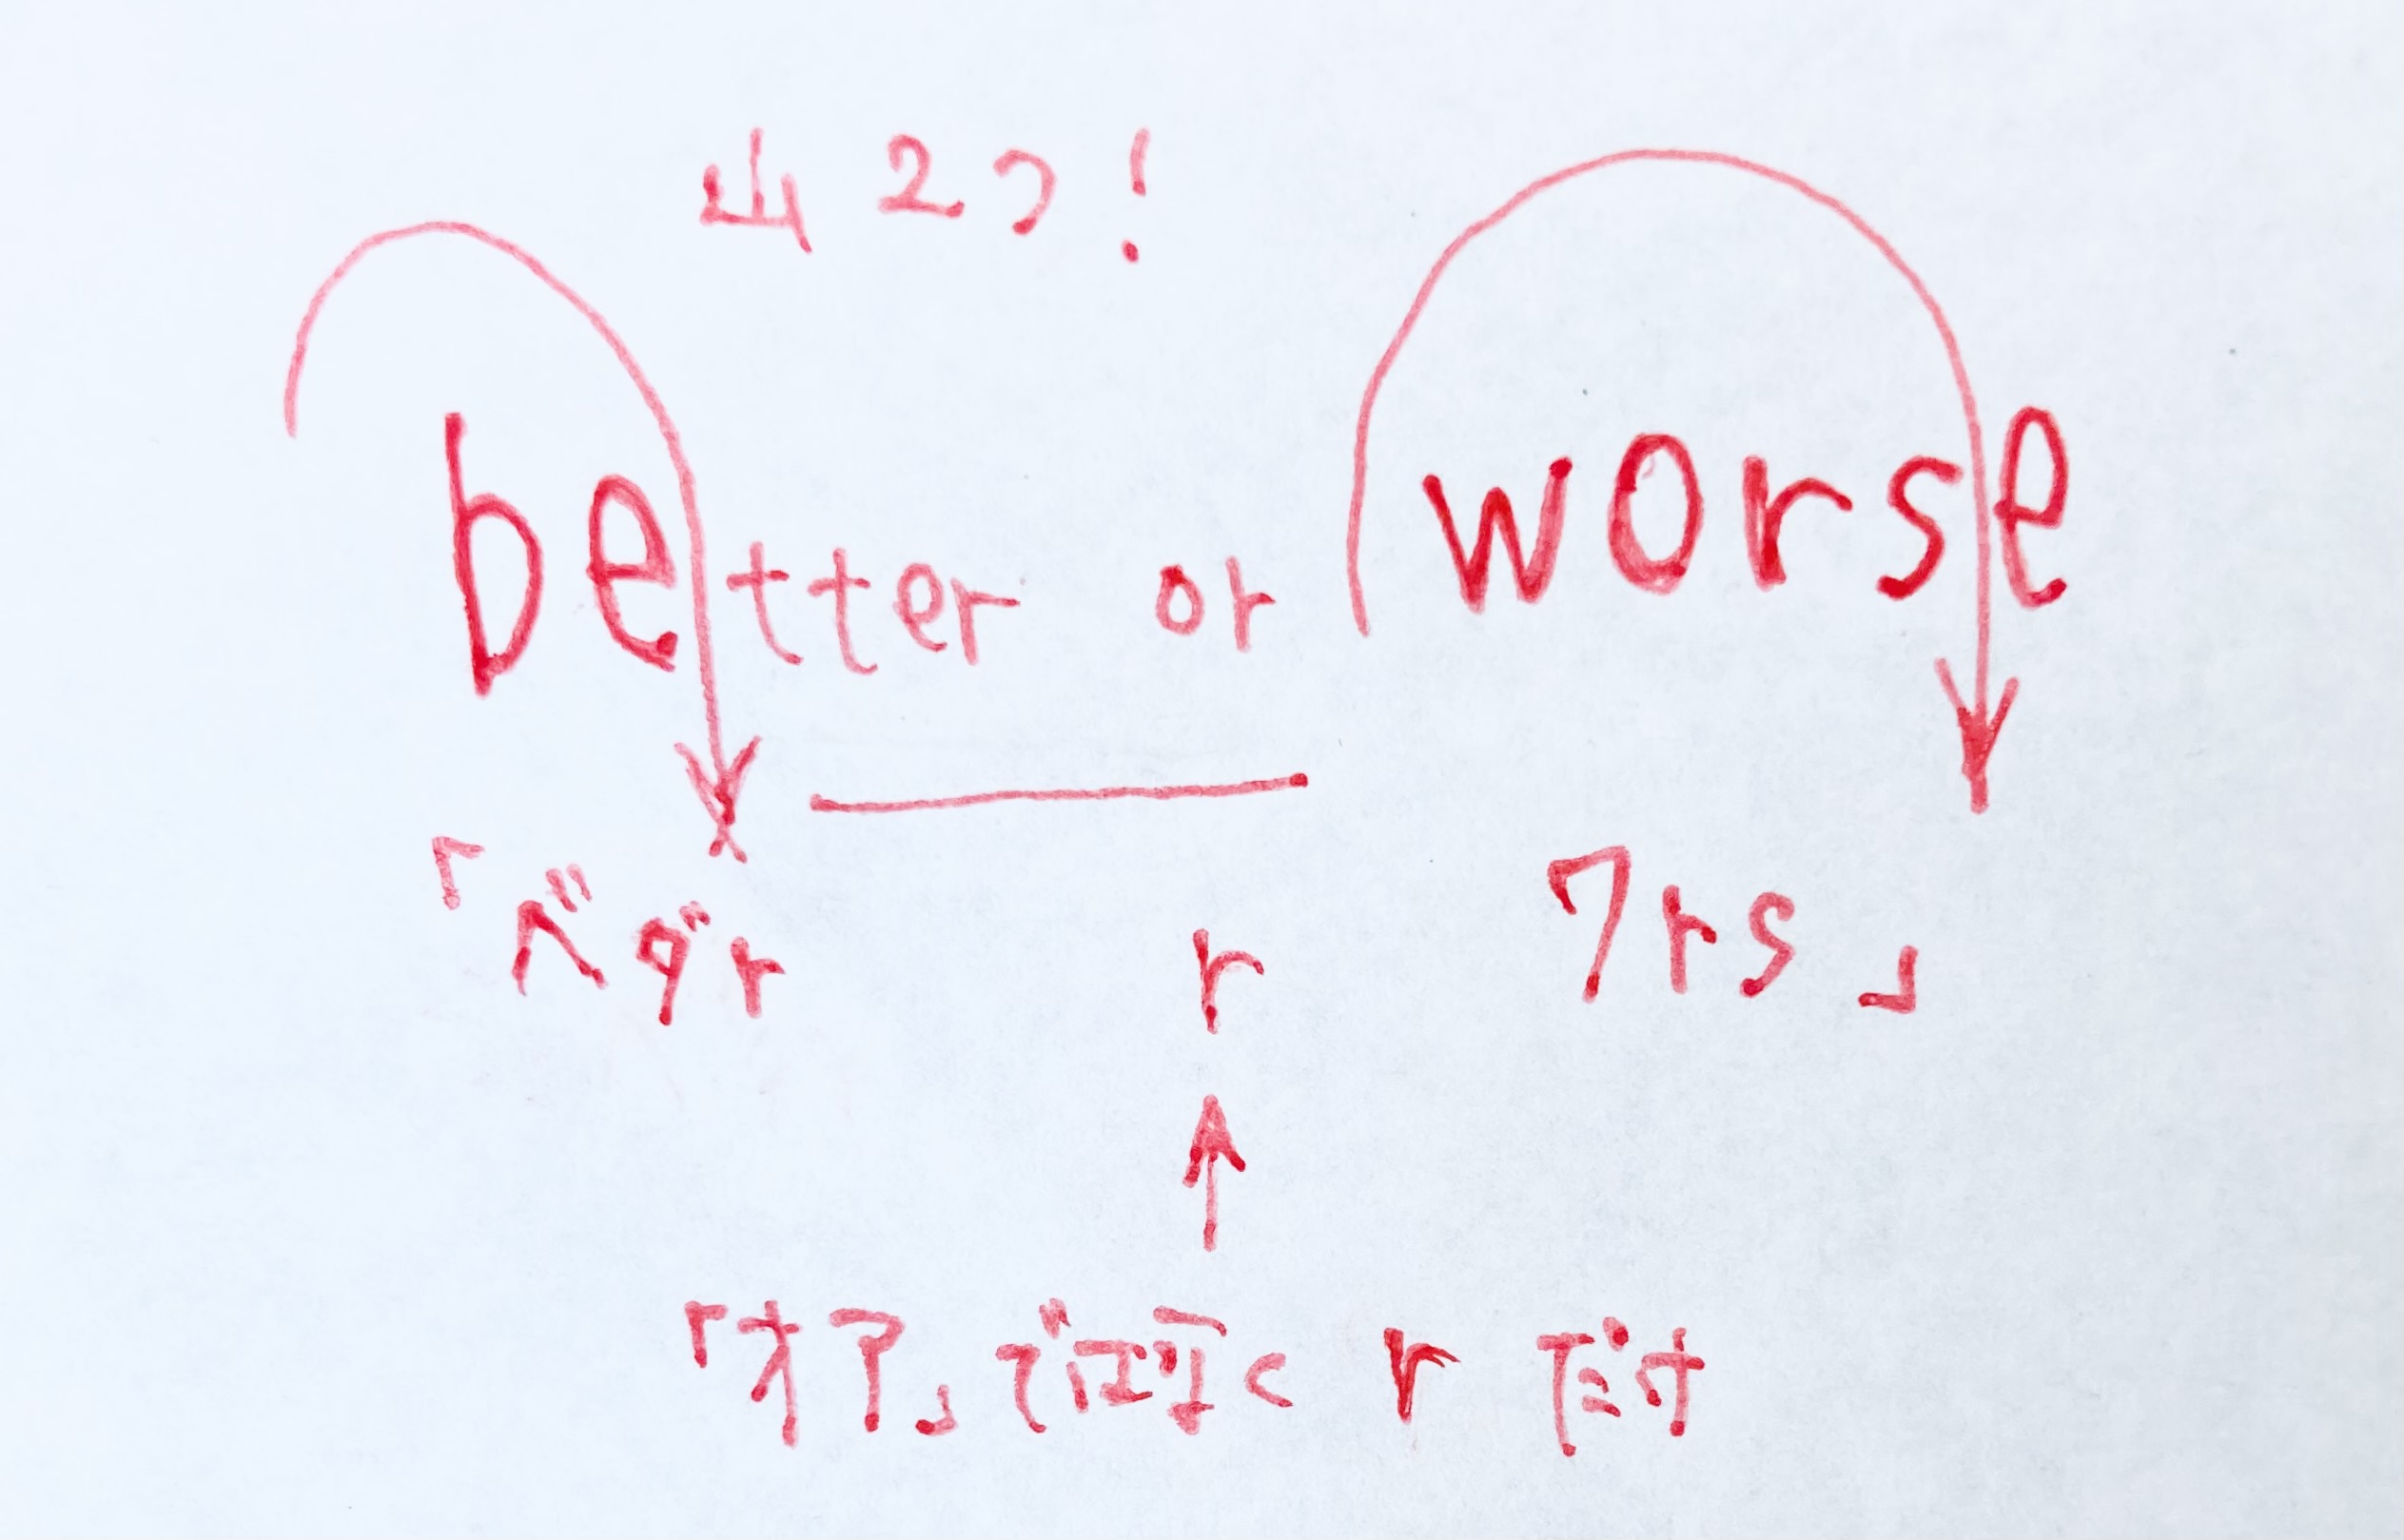 山2つ!
better or worse
「ベダr r ワrs」
「オア」ではなく r だけ